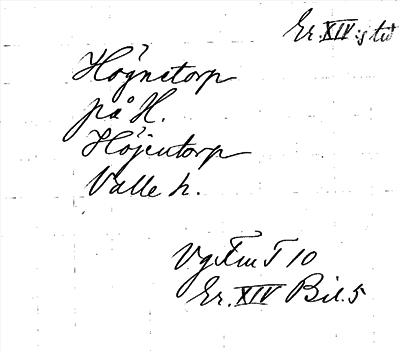 Er. XIV:s tid
Högnatorp
på H.
Höjentorp
Valle h.
Vg Fm T 10
Er. XIV Bil. 5